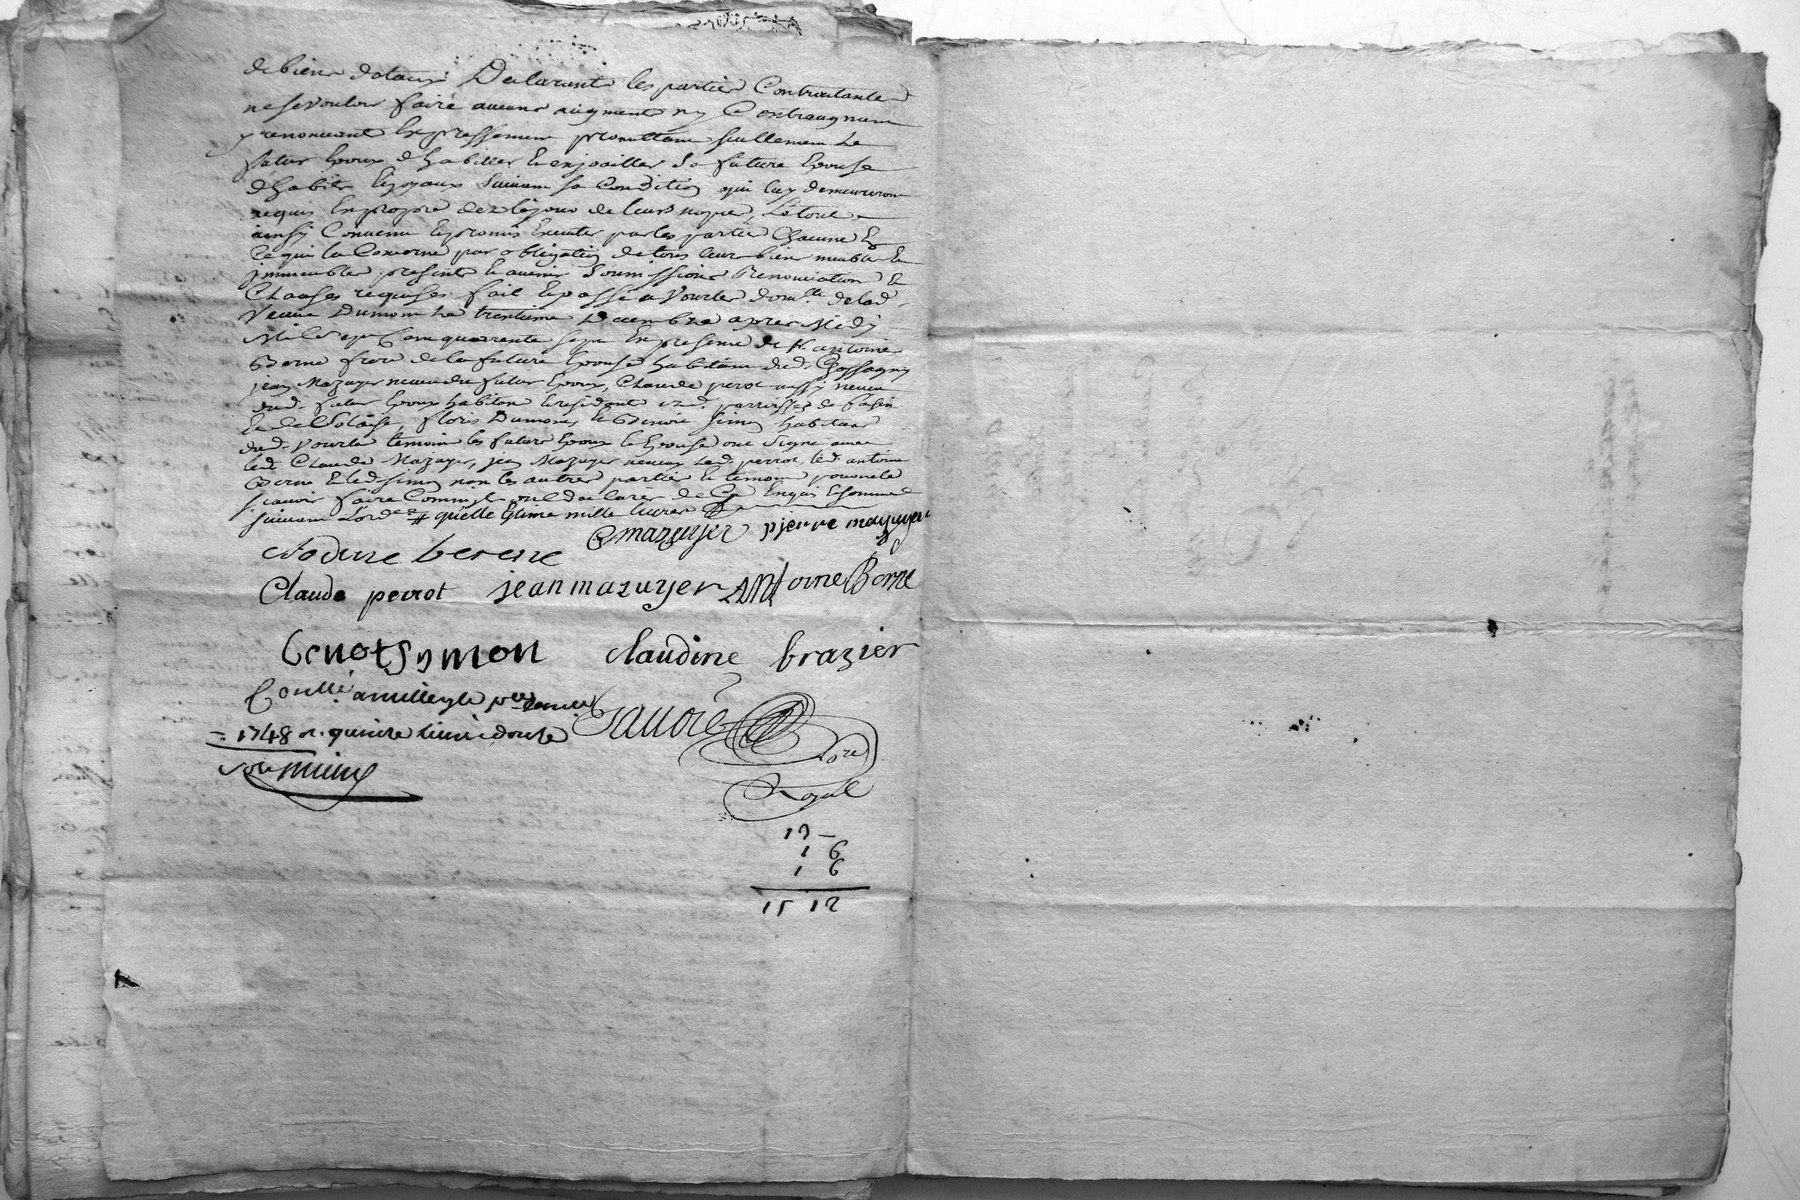 de biens dotaux Declarant les partie Contractante
ne se vouloir faire aucuns augment ny Contraugment
y renoncant Expressement promettant seullement Le
futur Epoux d'habiller Enjoailler sa future Epouse
d'habits Joyaux suivant sa Condition qui luy demeureront
acquis En propre dez le jour de leurs nopces, Le tout
ainsy Convenu Et promis Executer par les partie Chacune En
Ce qui la Concerne par obligation de tous leur biens meuble Et
jmmeubles present Et avenir soumissions Renonciation Et
Clauses requises fait Et passé a Vourles dom.lle de lad.
Veuve Dumont Le trentieme Decembre apres Midy
Mil sept Cent quarrente sept En presence de antoine
Berne frere de la future Epouse habitant dud. Chassagny
jean Mazuyer neveu du futur Epoux, Claude perot aussi neveu
dud. futur Epoux habitant Et residant parroisses de
Et de Solaise, floris Dumont, Et Benoit simon habitant
dud. Vourles temoin les future Epoux Et Epouse ont signe avec
led. Claude Mazuyer, jean Mazuyer neveux Led. perrot, led. antoine
Berne Et led. simon non les autres partie Et temoin pour ne le
scavoir faire Comme ont declarés de Ce Enquis Et sommé
suivant L'ord.ce # qu'elle Estime mille livres
C mazuyer pierre mazuyer
Clodine berene
Claude perrot jean mazuyer Antoine Berne
Benot Symon Claudine brazier
Conllé a millery le p.er
= 1748 r. quinze livre douze
sols
Gauvre
No.re
Royal
13 —
1 6
1 6
15 12